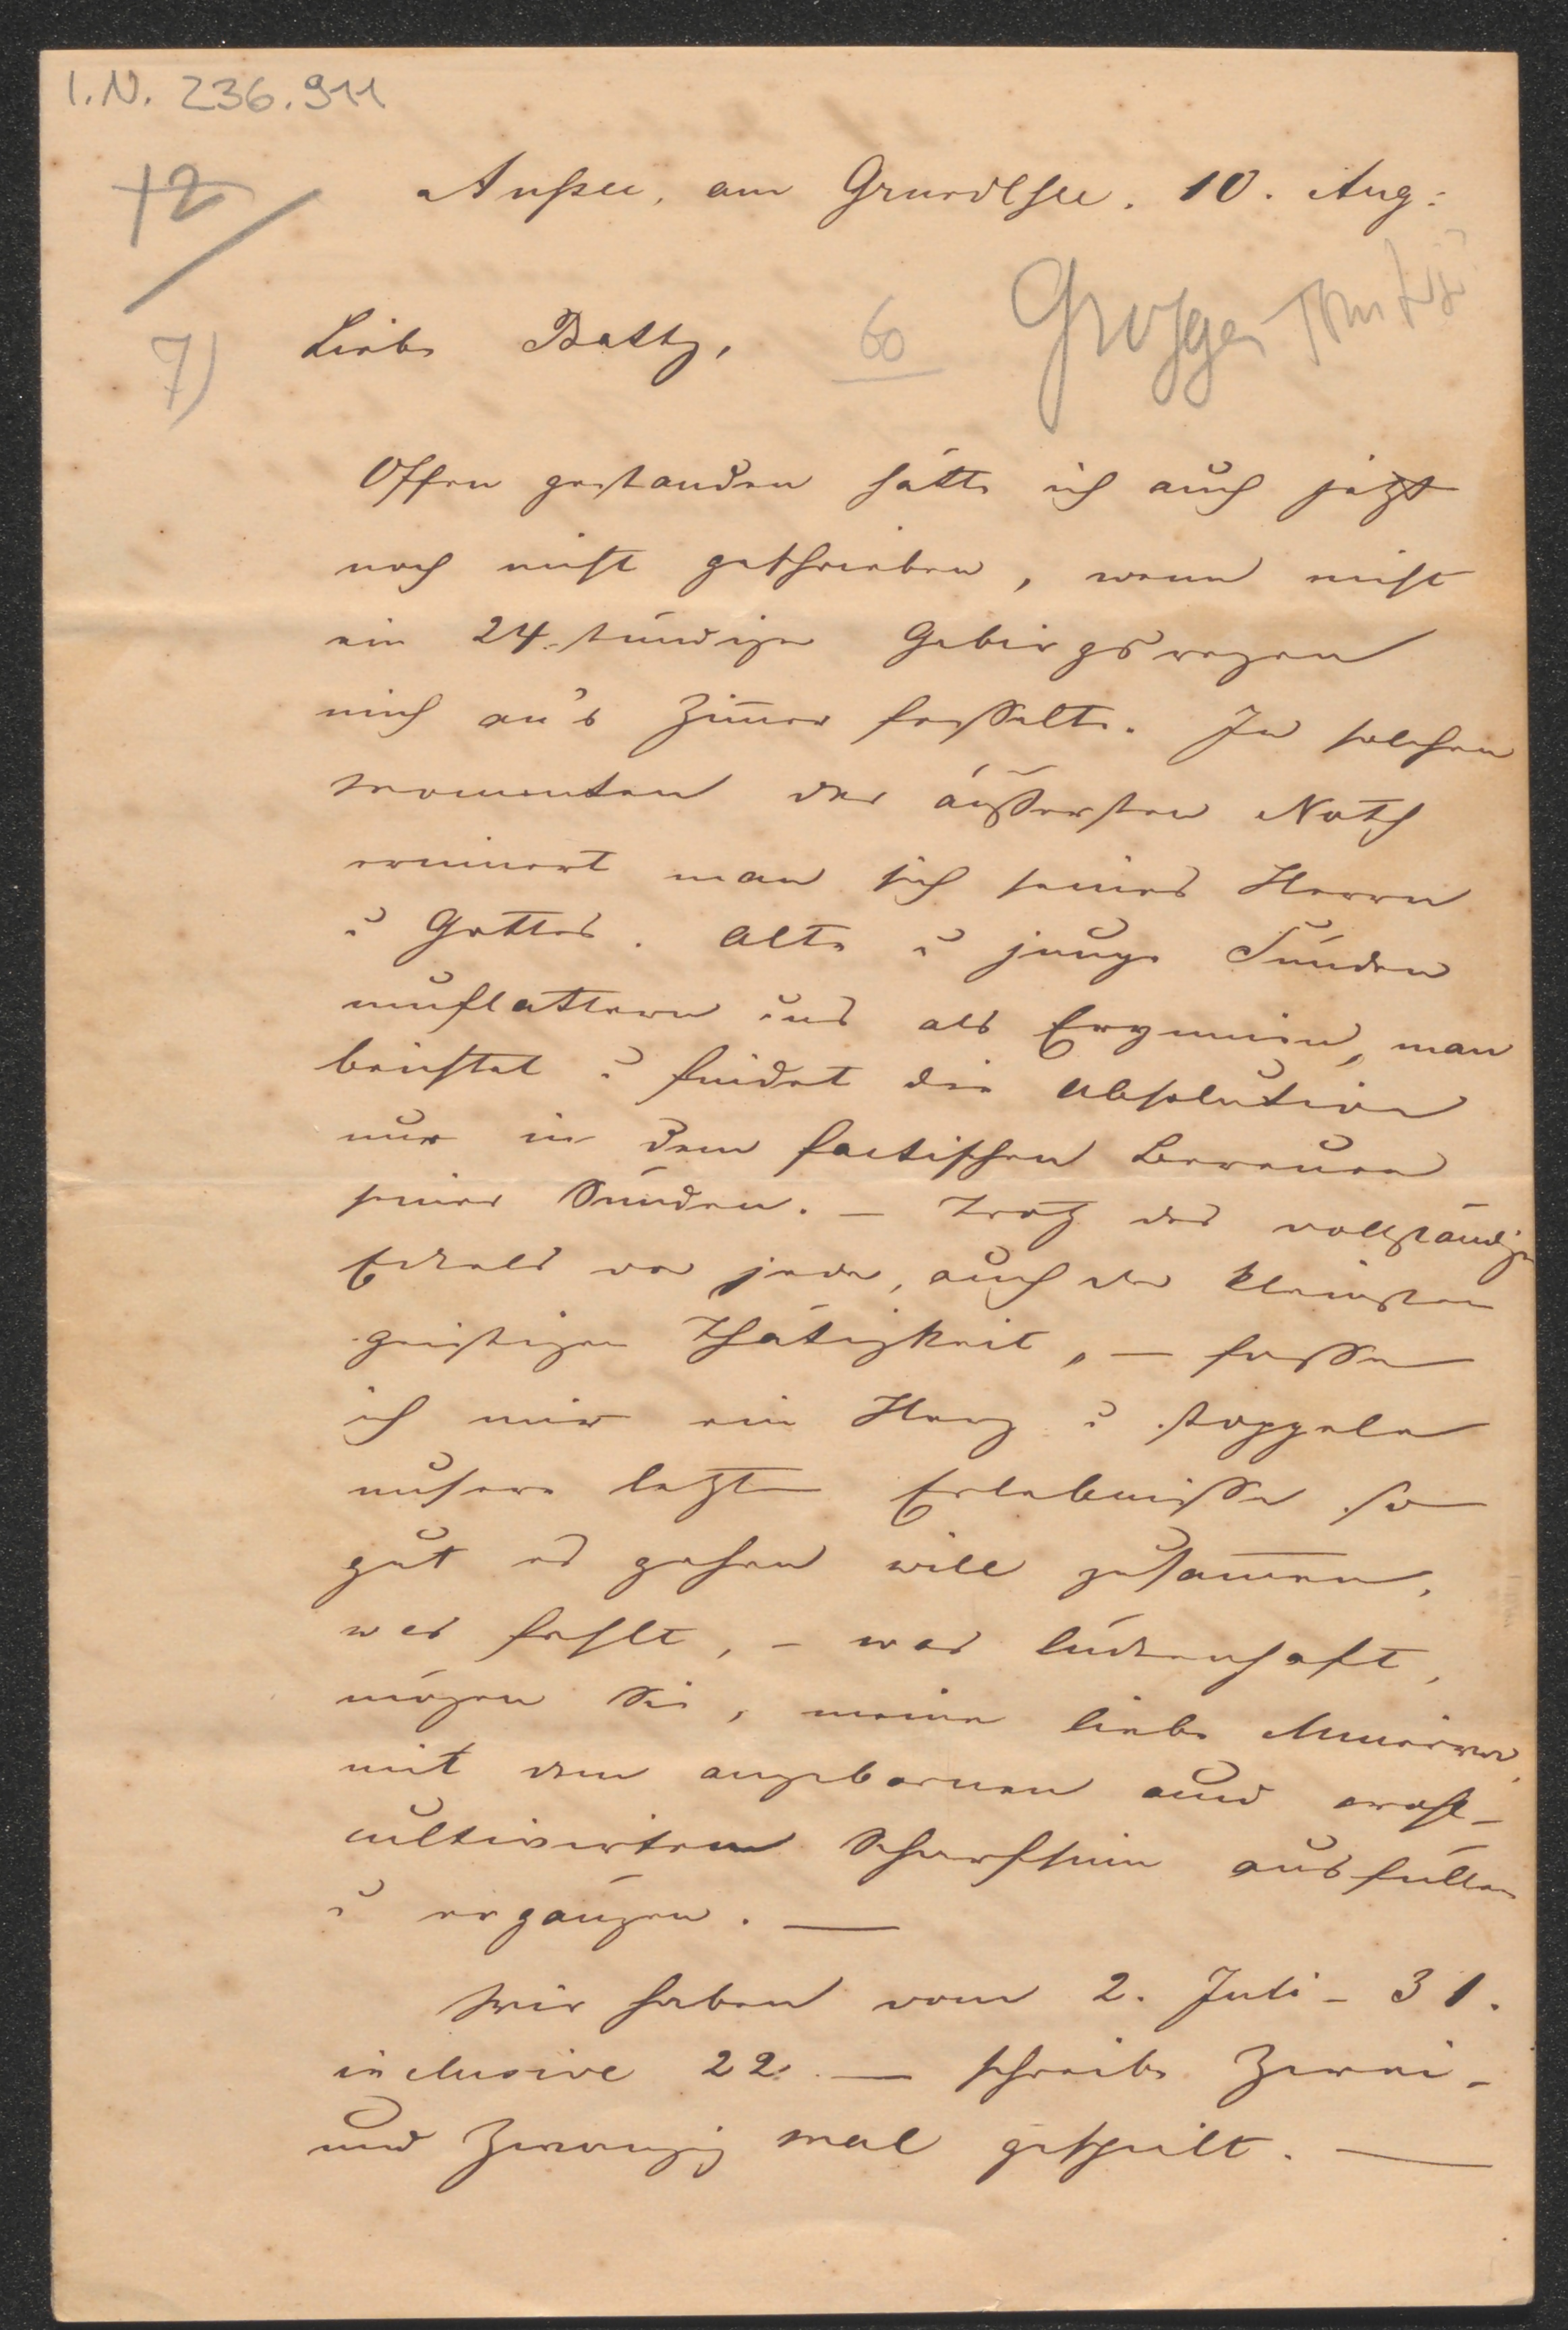 I.N. 236.911
12
Aussee, am Grundlsee. 10. Aug:
7)
60
Liebe Betty,
Offen gestanden hätte ich auch jetzt
noch nicht geschrieben, wenn nicht
ein 24.stündiger Gebirgsregen
mich an's Zim̅er fesselte. In solchen
Momenten der äussersten Noth
erinnert man sich seines Herrn
u Gottes. Alte u junge Sünden
umflattern uns als Erynnien, man
beichtet u findet die Absolution
nur in dem factischen Bereuen
seiner Sünden. – Trotz des vollständigen
Eckels vor jeder, auch der kleinsten
geistigen Thätigkeit, – fasse
ich mir ein Herz u stoppele
unsere letzten Erlebnisse so
gut es gehen will zusam̅en,
was fehlt, – was lückenhaft,
mögen Sie, meine liebe Minerva,
mit dem angebornen und
cultivirten Scharfsinn ausfüllen
u ergänzen. —
Wir haben vom 2. Juli – 31.
inclusive 22. — schreibe Zwei-
und Zwanzig mal gespielt. —